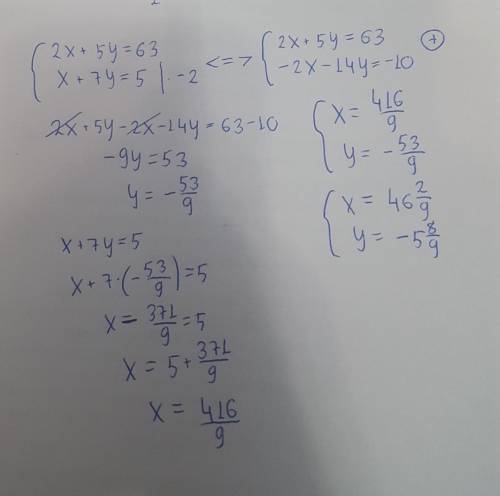 { 2x + 5y = 63
x + 7y = 5 | · -2 <=> { 2x + 5y = 63 (+)
-2x - 14y = -10
2x + 5y - 2x - 14y = 63 - 10
-9y = 53
y = - 53/9
x + 7y = 5
x + 7 · (- 53/9) = 5
x = 371/9 = 5
x = 5 + 371/9
x = 416/9
{ x = 416/9
y = - 53/9
{ x = 46 2/9
y = -5 8/9